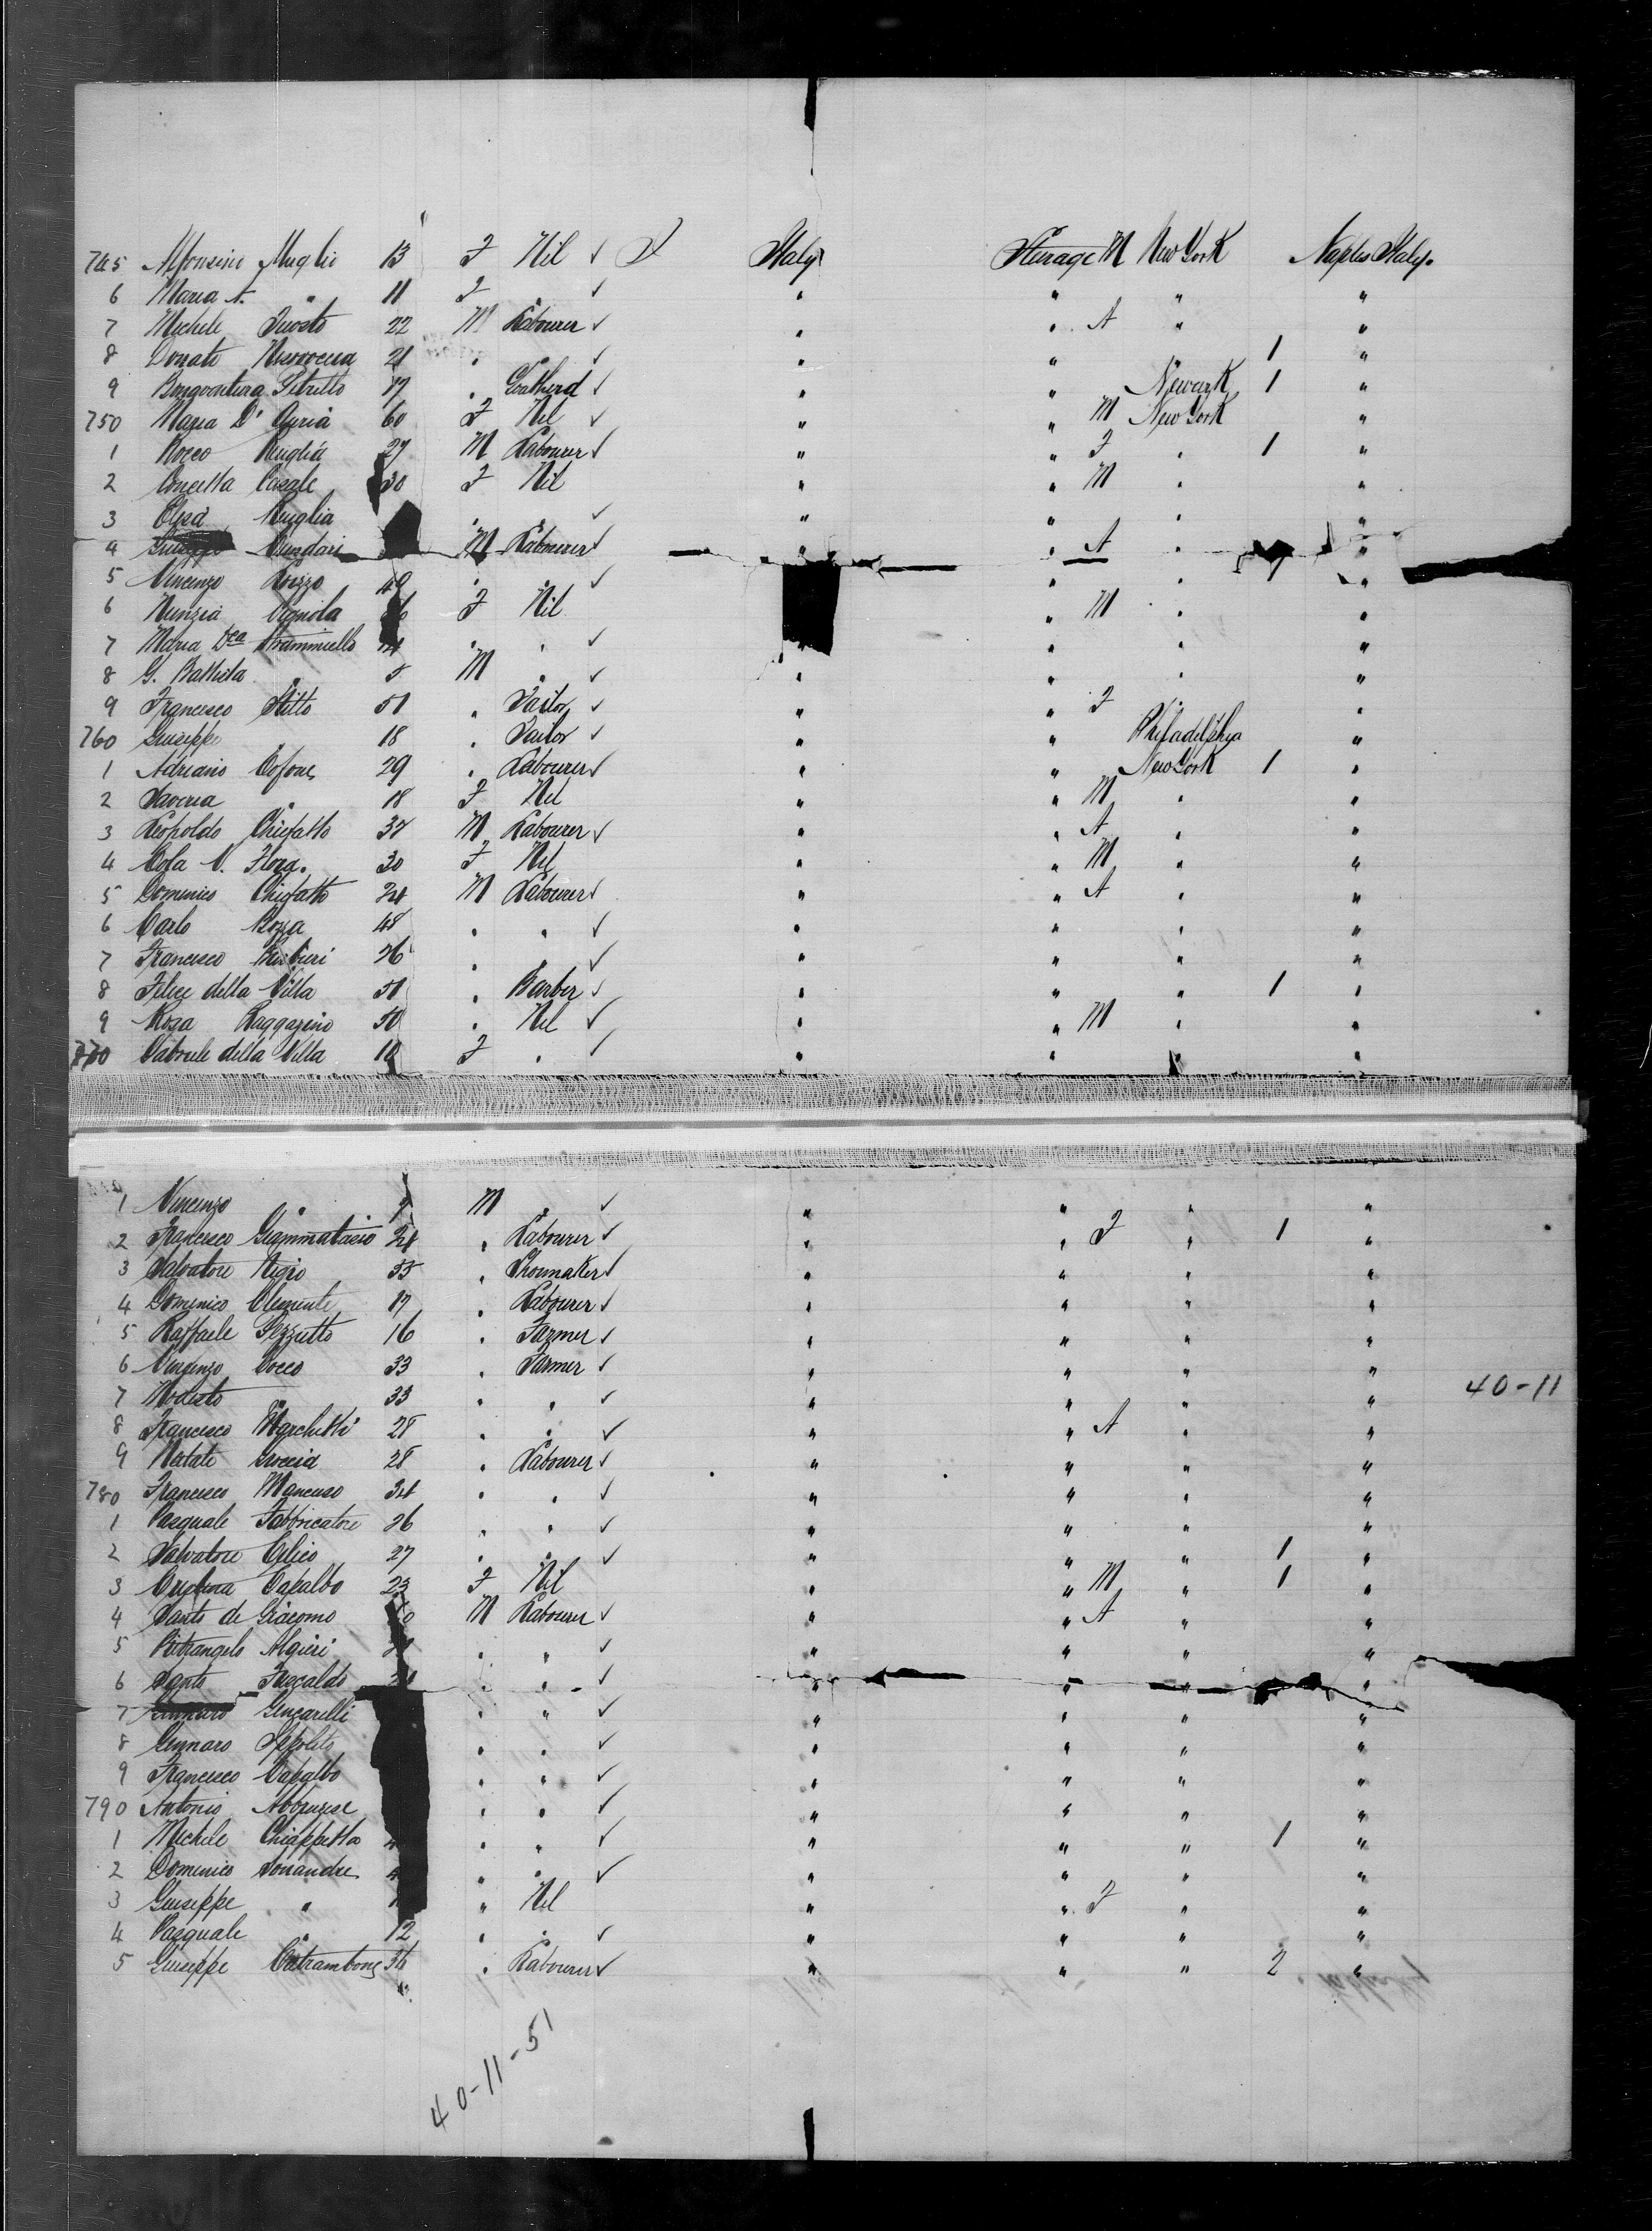 745 Alfonsino Muglio 13 F Nil ✓ S Italy Steerage M New York Naples Italy.
6 Maria A. " 11 F " ✓ " " " "
7 Michele 22 M Labourer ✓ " " A " "
8 Donato 21 " " ✓ " " 1 "
9 Bonaventura Petrillo 17 " Goatherd ✓ " " Newark 1 "
750 Maria D' Auria 60 F Nil ✓ " " M New York "
1 Rocco Ruglia 27 M Labourer ✓ " " F " 1 "
2 Concetta Casale 30 F Nil " " M " "
3 Elisa Ruglia " " ✓ " " " "
4 Mundari M Labourer ✓ " " A " "
5 Vincenzo Rizzo 49 " ✓ " " "
6 Nunzia Vignola F Nil " M " "
7 Maria Dca Strammiello " " ✓ " " " "
8 G. Battista " 5 M " ✓ " " " "
9 Francesco Stitto 51 " Tailor ✓ " " F " "
760 Giuseppe " 18 " Tailor ✓ " " Philadelphia "
1 Adriano Cofone 29 " Labourer ✓ " " New York 1 "
2 Saveria " 18 F Nil " " M " "
3 Leopoldo Chiefallo 37 M Labourer ✓ " " A " "
4 Cola M. Flora. 30 F Nil " " M " "
5 Domenico Chiefallo 24 M Labourer ✓ " " A " "
6 Carlo Bozza 48 " " ✓ " " " "
7 Francesco Barbieri 26 " " ✓ " " " "
8 Felice della Villa 51 " Barber ✓ " " " 1 "
9 Rosa Raggazino 50 " Nil ✓ " " M " "
770 Gabriele della Villa 10 F " ✓ " " " "
1 Vincenzo " M " ✓ " " " "
2 Francesco Giammatasio 24 " Labourer ✓ " " F " 1 "
3 Salvatore Nigro 35 " Shoemaker ✓ " " " "
4 Domenico Clemente 17 " Labourer ✓ " " " "
5 Raffaele Pezzutto 16 " Farmer ✓ " " " "
6 Vincenzo Cocco 33 " Farmer ✓ " " " "
7 Modesto " 33 " " ✓ " " " " 40-11
8 Francesco Marchetti 28 " " ✓ " " A " "
9 Natale Groccia 28 " Labourer ✓ " " " "
780 Francesco Mancuso 34 " " ✓ " " " "
1 Pasquale Fabbricatore 26 " " ✓ " " " "
2 Salvatore Celico 27 " " ✓ " " " 1 "
3 Capalbo 23 F Nil " " M " 1 "
4 Santo de Giacomo M Labourer ✓ " " A " "
5 Pietrangelo Algieri " " ✓ " " " "
6 Santo Fuscaldo " " ✓ " " " "
7 Gennaro Gencarelli " " ✓ " " " "
8 Gennaro Ippolito " " ✓ " " " "
9 Francesco Capalbo " " ✓ " " " "
790 Antonio Abbruzese " " ✓ " " " "
1 Michele Chiappetta " " ✓ " " " 1 "
2 Domenico Sonandre " " ✓ " " " "
3 Giuseppe " " Nil " " F " "
4 Pasquale " 12 " " ✓ " " " "
5 Giuseppe Catrambone 34 " Labourer ✓ " " " 2 "
40-11-51